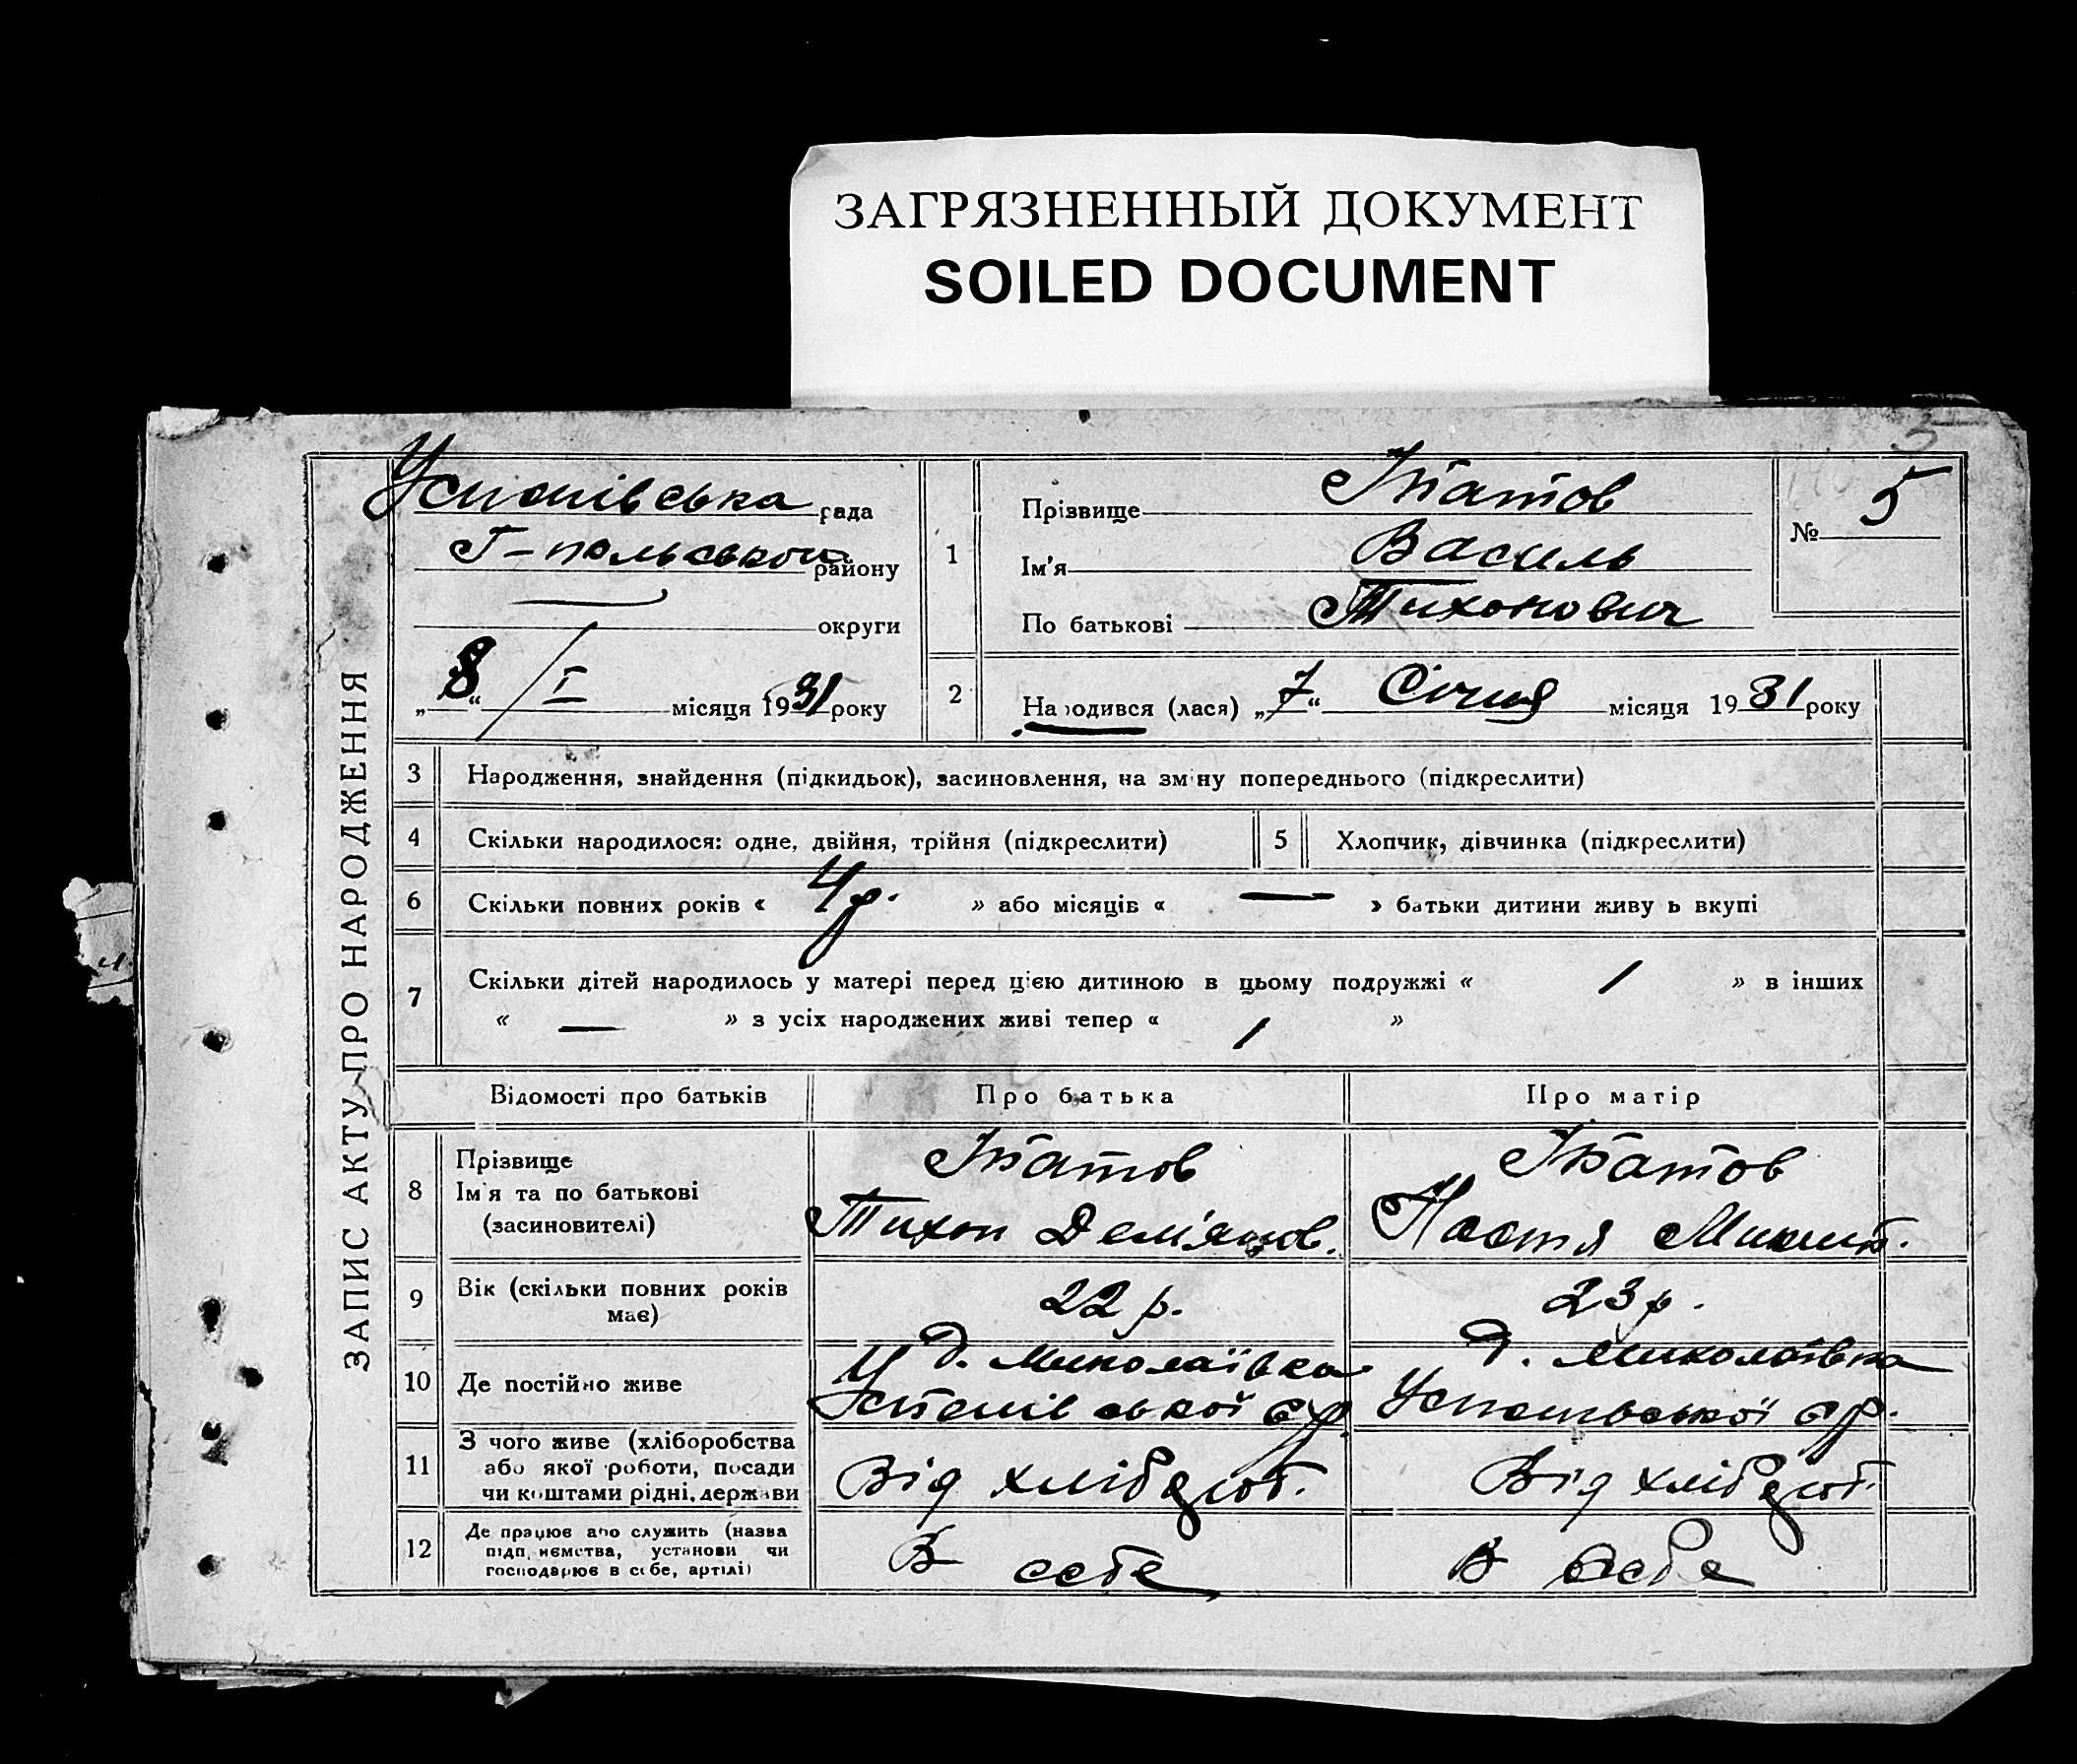 ЗАГРЯЗНЕННЫЙ ДОКУМЕНТ
SOILED DOCUMENT
5
ЗАПИС АКТУ ПРО НАРОДЖЕННЯ
Успенівська рада
Г-польського району
— округи
„8“ / I місяця 1931 року
1
Прізвище Іпатов
Ім'я Василь
По батькові Тихонович
№ 5
2 Народився (лася) „7“ Січня місяця 1931 року
3 Народження, знайдення (підкидьок), засиновлення, на зміну попереднього (підкреслити)
4 Скільки народилося: одне, двійня, трійня (підкреслити) 5 Хлопчик, дівчинка (підкреслити)
6 Скільки повних років « 4 р. » або місяців « — » батьки дитини живуть вкупі
7 Скільки дітей народилось у матері перед цією дитиною в цьому подружжі « 1 » в інших
« — » з усіх народжених живі тепер « 1 »
Відомості про батьків Про батька Про матір
8 Прізвище Ім'я та по батькові (засиновителі)
Іпатов
Тихон Дем'янов.
Іпатов
Настя Микит.
9 Вік (скільки повних років має) 22 р. 23 р.
10 Де постійно живе
д. Миколаївка
Успенівської с/р.
д. Миколаївка
Успенівської с/р.
11 З чого живе (хліборобства або якої роботи, посади чи коштами рідні, держави
Від хлібороб.
Від хлібороб.
12 Де працює або служить (назва підприємства, установи чи господарює в себе, артілі)
В себе
В себе